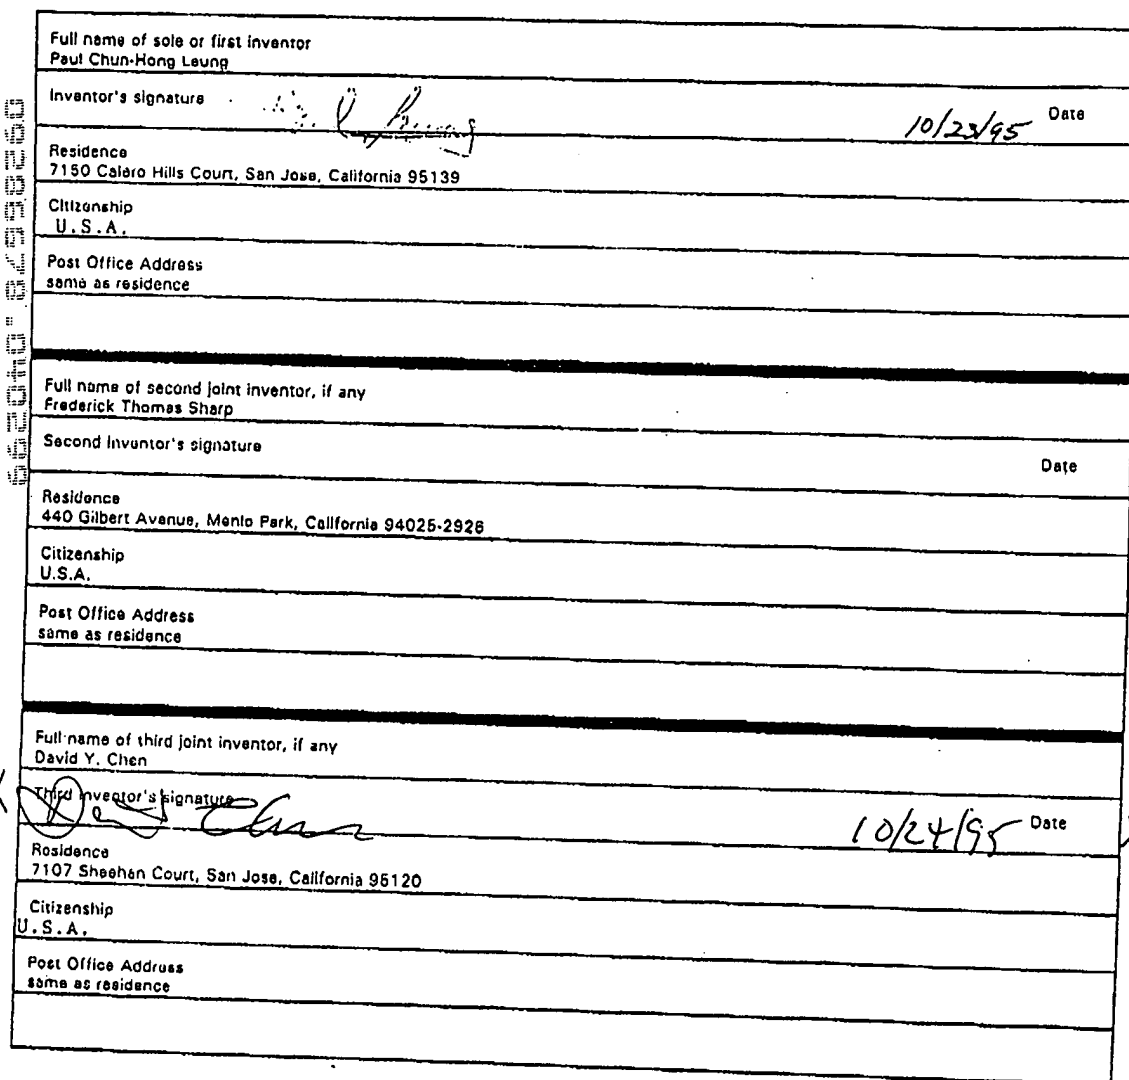 Full name of sole or first inventor
Paul Chun-Hong Leung
Inventor's signature
10/23/95 Date
Residence
7150 Calero Hills Court, San Jose, California 95139
Citizenship
U.S.A.
Post Office Address
same as residence
Full name of second joint inventor, if any
Frederick Thomas Sharp
Second Inventor's signature
Date
Residence
440 Gilbert Avenue, Menlo Park, California 94025-2926
Citizenship
U.S.A.
Post Office Address
same as residence
Full name of third joint inventor, if any
David Y. Chen
Third inventor's signature
David Chen
10/24/95 Date
Residence
7107 Sheehan Court, San Jose, California 95120
Citizenship
U.S.A.
Post Office Address
same as residence